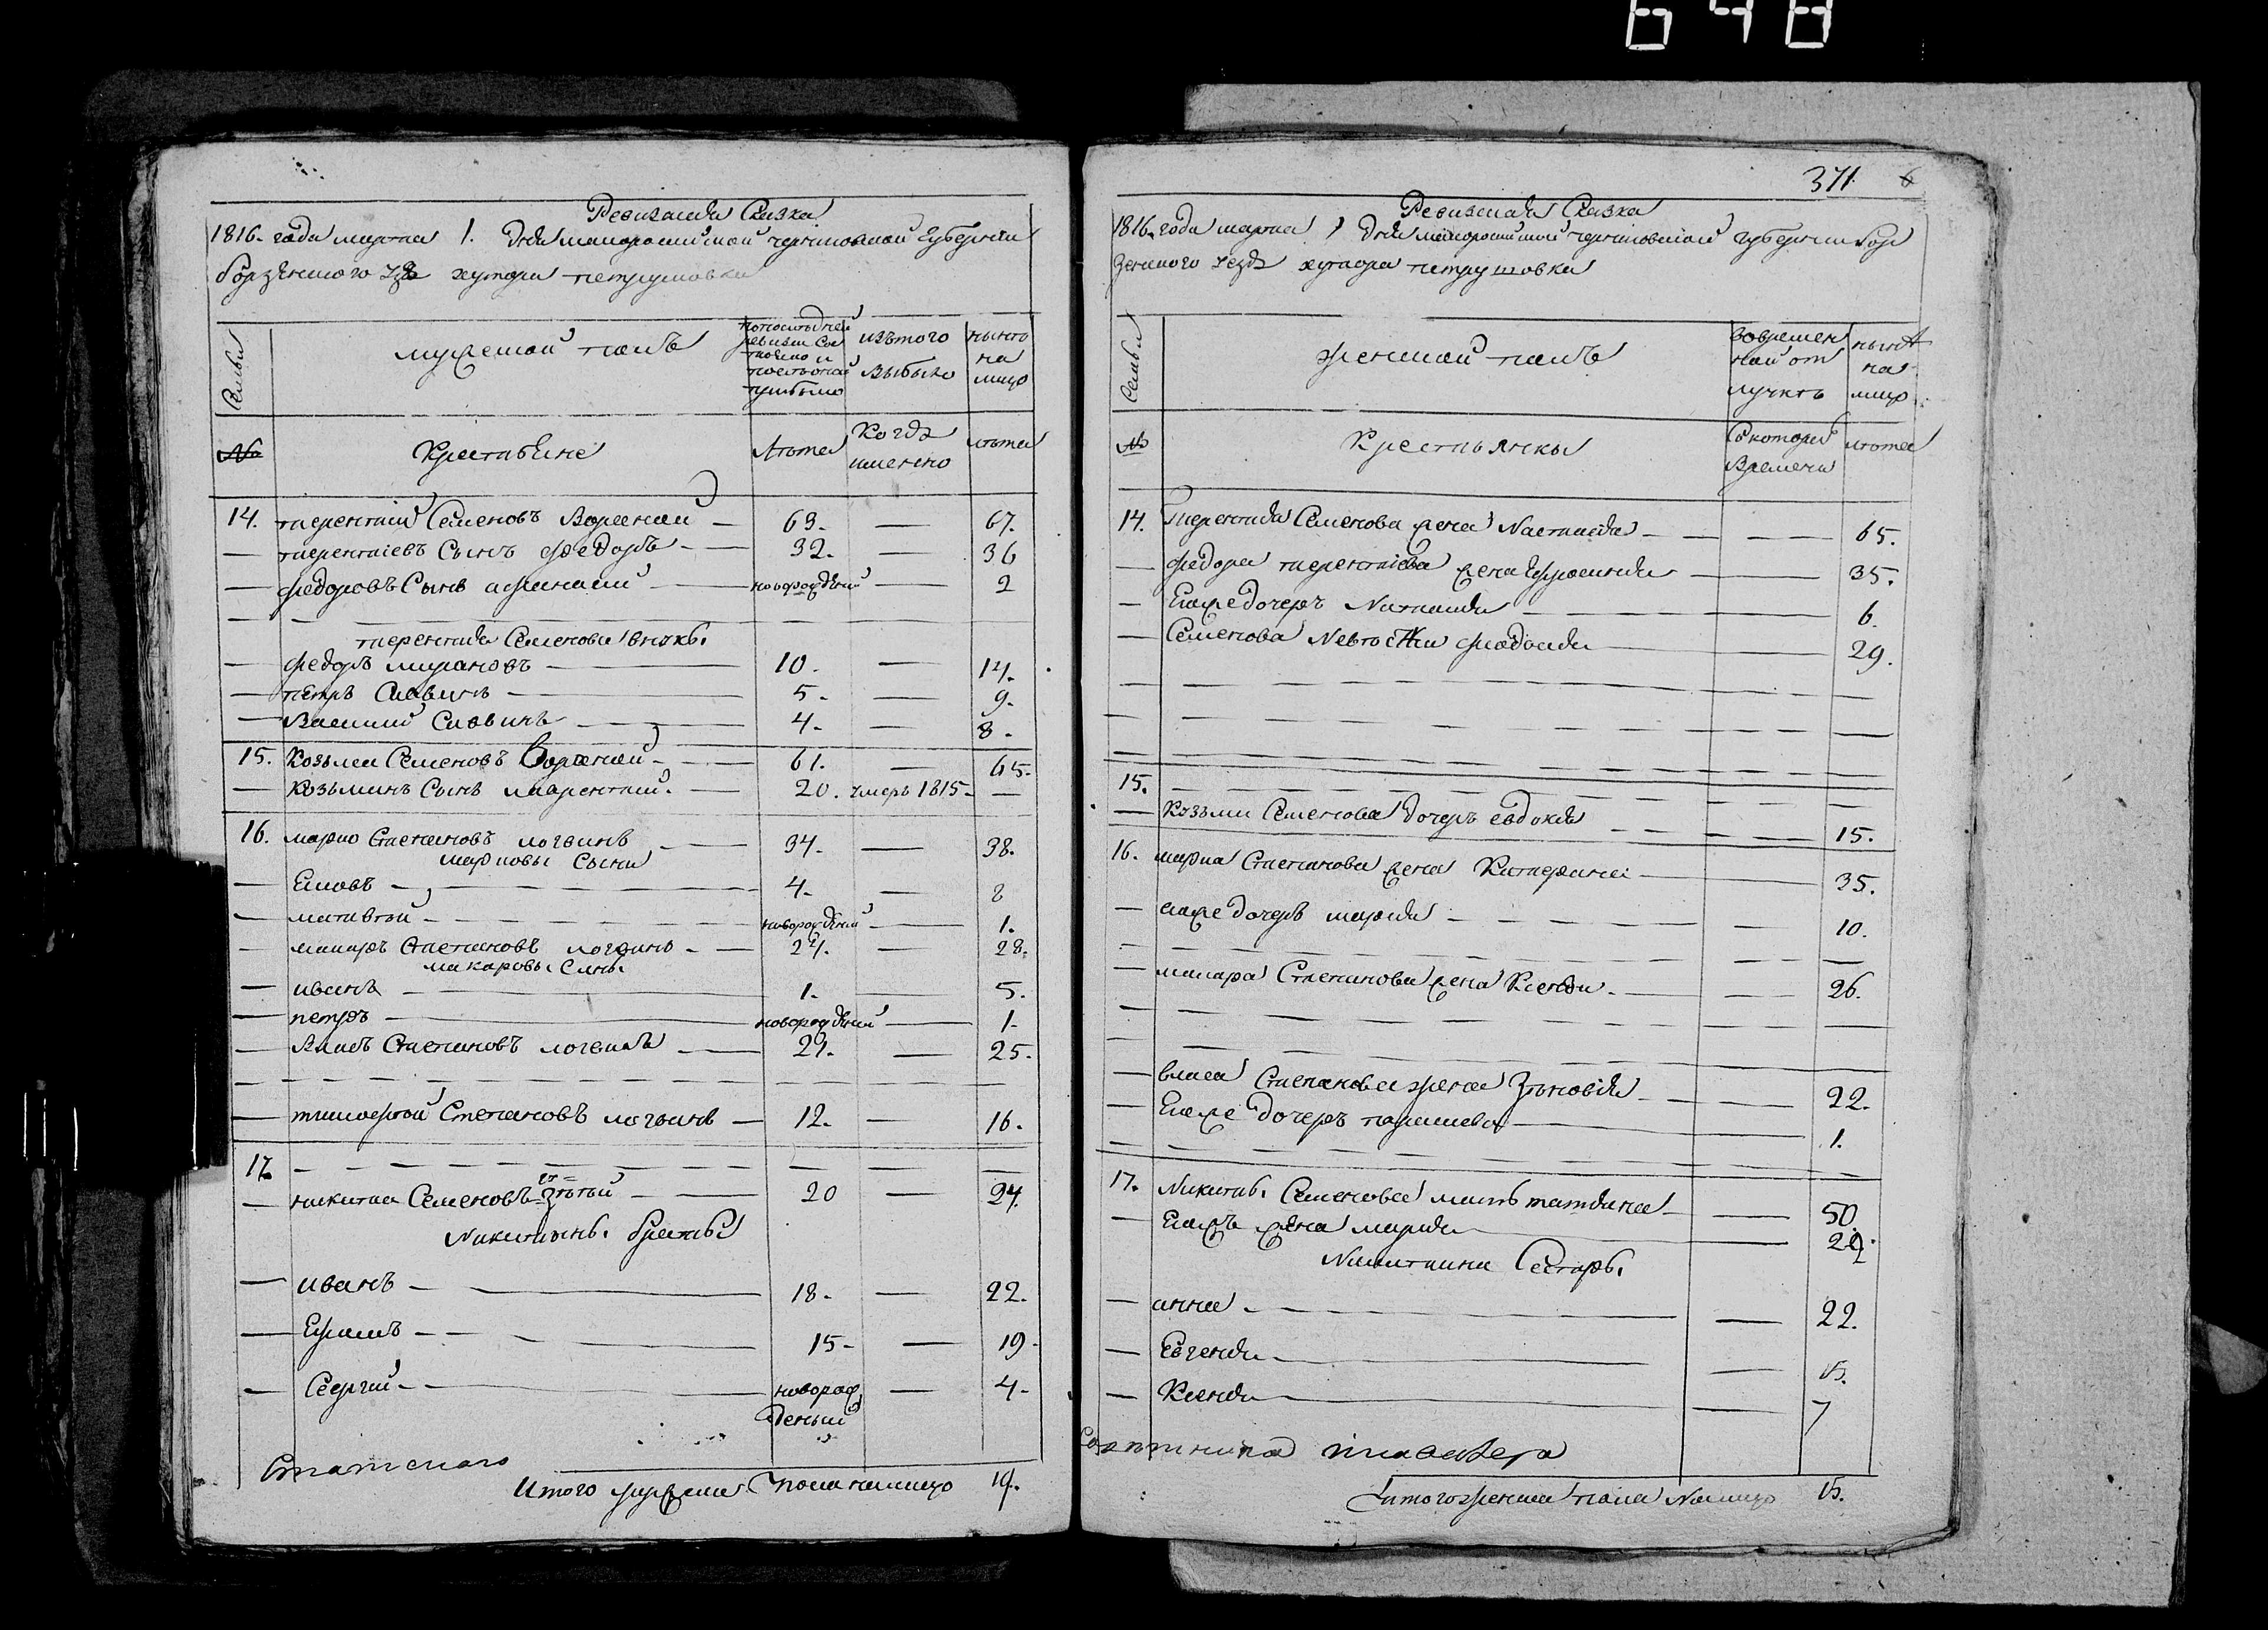 648
Ревизская Сказка
1816. года марта 1. дня малороссийской черниговской Губернии
борзенского уезда хутора петрушовки
Семьи
мужеской полъ
по последней ревизии Состояло и после оной прибыло
изътого выбыло
ныне на лицо
№
Крестьяне
лета
Когда именно
лета
14. терентий Семеновъ 63. — 67.
— терентиевъ Сынъ федоръ — 32. — 36
— федоровъ Сынъ афанасий — новорожденый — 2
терентия Семенова внуки
— федоръ — 10. — 14.
— петръ Савинъ — 5. — 9.
— Василий Савинъ — 4. — 8.
15. Козьма Семеновъ — 61. — 65.
— Козьминъ Сынъ лаврентий — 20. умеръ 1815 —
16. марко Степановъ логвинъ — 34. — 38.
марковы Сыны
— Еиовъ — 4. — 8
— матвей — новорожденый — 1.
— макаръ Степановъ логвинъ — 24. — 28.
макаровы Сыны
— иванъ — 1. — 5.
— петръ — новорожденый — 1.
— Власъ Степановъ логвинъ — 21. — 25.
— тимофей Степановъ логвинъ — 12. — 16.
17.
— никита Семеновъ 20 — 24.
Никитины братья
— иванъ — 18. — 22.
— Ефимъ — 15 — 19
— Сергий — новорожденый — 4
Статского
Итого мужеска пола налицо 19.
371. 6
Ревизская Сказка
1816. года марта 1 дня малороссийской черниговской губернии бор
зенского уезда хутора петрушовки
Семьи
женской полъ
вовременной отлучке
ныне на лицо
№
Крестьянки
Скоторого времени
лета
14. терентия Семенова жена Настасия — 65.
— федора терентиева жена Ефросиния — 35.
— Егоже дочерь Наталия — 6.
— Семенова Невестка феодосия — 29.
15.
— Козьми Семенова дочерь евдокия — 15.
16. марка Степанова жена Катерина — 35.
— егоже дочерь мария — 10.
— макара Степанова жена Ксения — 26.
— власа Степанова жена Зеновия — 22.
— Егоже дочерь параскева — 1.
17. Никиты Семенова мать татияна — 50.
— Егожъ жена мария — 22.
Никитини Сестры
— анна — 22.
— Евгения — 15.
— Ксения — 7
Советника
Итого женска пола Налицо 15.